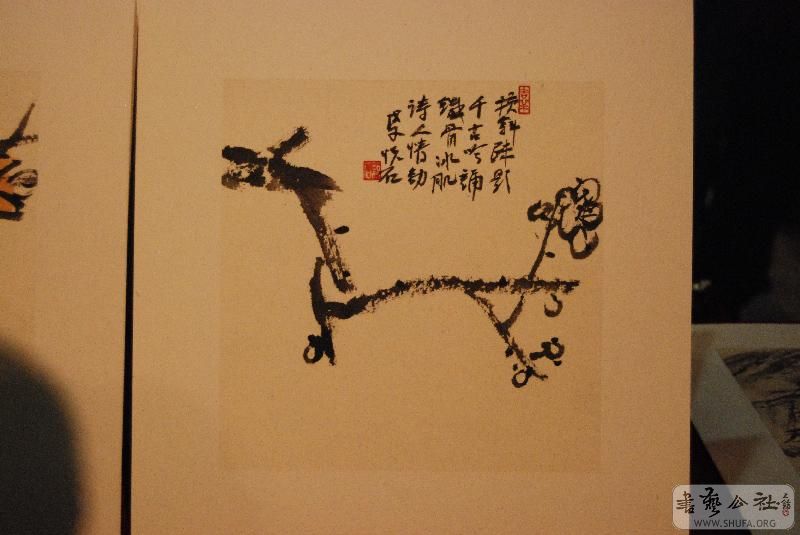 横斜疏影
千古吟诵
铁骨冰肌
诗人情韵
悦石
書藝公社
WWW.SHUFA.ORG